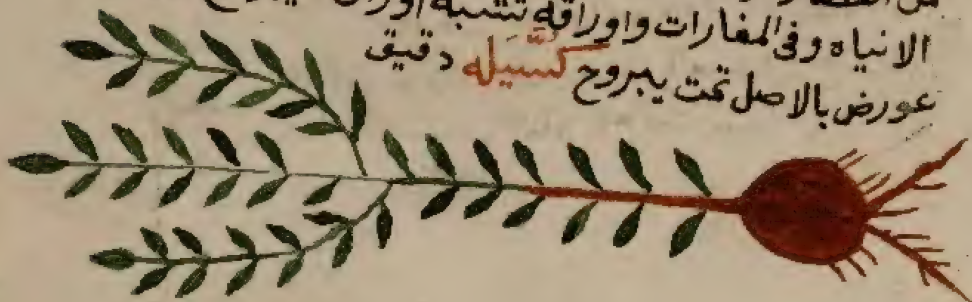 الانياه وفى المغارات واوراقه تشبه
عورض بالاصل تمت يبروح كسيله دقيق